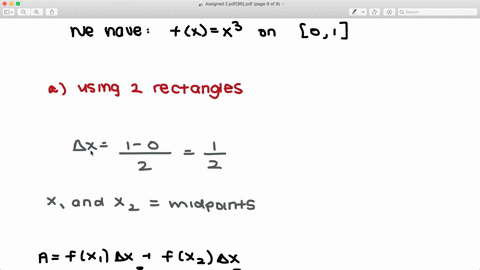 Assigned 2.pdf[96].pdf (page 9 of 9)
We have: f(x)=x³ on [0,1]
a) using 2 rectangles
Δx = 1-0 / 2 = 1/2
x₁ and x₂ = midpoints
A = f(x₁) Δx + f(x₂) Δx